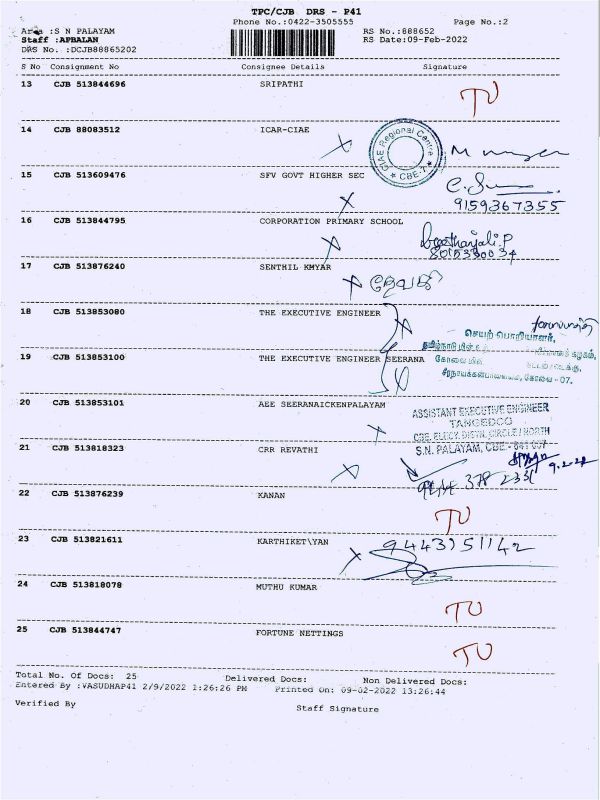 TPC/CJB DRS - P41
Phone No.:0422-3505555 Page No.:2
Area :S N PALAYAM RS No.:888652
Staff :APBALAN RS Date:09-Feb-2022
DRS No. :DCJB88865202
S No Consignment No Consignee Details Signature
13 CJB 513844696 SRIPATHI TU
14 CJB 88083512 ICAR-CIAE
CIAE Regional Centre
* CBE-7 *
15 CJB 513609476 SFV GOVT HIGHER SEC
9159367355
16 CJB 513844795 CORPORATION PRIMARY SCHOOL
17 CJB 513876240 SENTHIL KMYAR
18 CJB 513853080 THE EXECUTIVE ENGINEER
செயற் பொறியாளர்,
19 CJB 513853100 THE EXECUTIVE ENGINEER SEERANA
கோவை - 07.
20 CJB 513853101 AEE SEERANAICKENPALAYAM
ASSISTANT EXECUTIVE ENGINEER
TANGEDCO
CBE. ELECY. DISTN. CIRCLE / NORTH
S.N. PALAYAM, CBE - 641 007
21 CJB 513818323 CRR REVATHI
9.2.22
22 CJB 513876239 KANAN TU
23 CJB 513821611 KARTHIKET\YAN 9443951142
24 CJB 513818078 MUTHU KUMAR TU
25 CJB 513844747 FORTUNE NETTINGS TU
Total No. Of Docs: 25 Delivered Docs: Non Delivered Docs:
Entered By :VASUDHAP41 2/9/2022 1:26:26 PM Printed On: 09-02-2022 13:26:44
Verified By Staff Signature